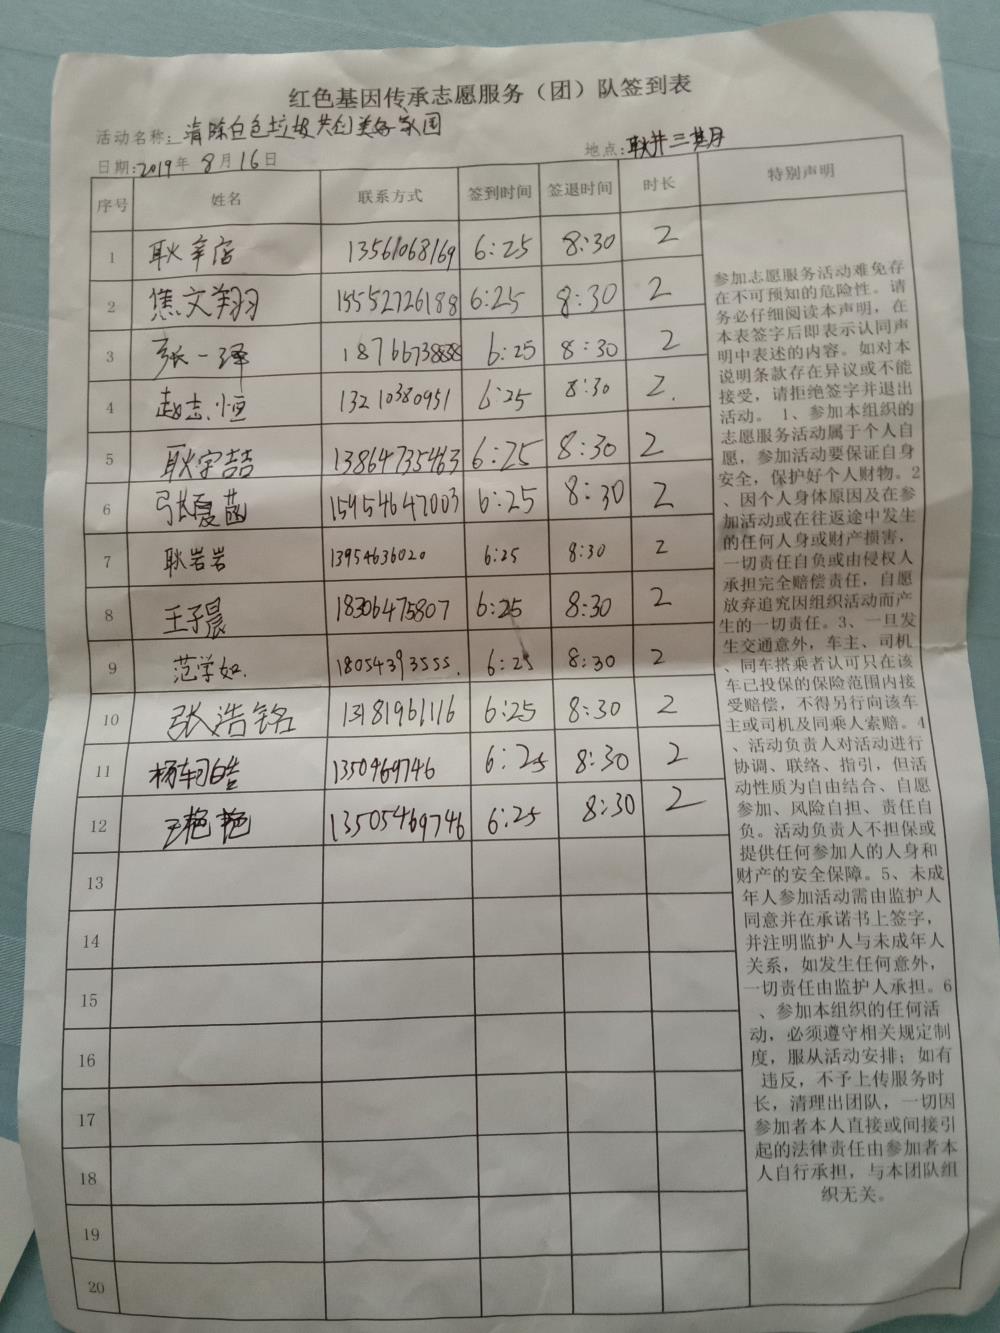 红色基因传承志愿服务（团）队签到表
活动名称：清除白色垃圾共创美好家园
日期：2019年8月16日 地点：耿井三基月
序号 姓名 联系方式 签到时间 签退时间 时长 特别声明
1 耿辛店 13561068169 6:25 8:30 2
2 焦文翔 15552726188 6:25 8:30 2
3 张一泽 18766738888 6:25 8:30 2
4 赵志恒 13210380951 6:25 8:30 2.
5 耿宇喆 13864735463 6:25 8:30 2
6 张夏菡 15954647003 6:25 8:30 2
7 耿岩岩 13954636020 6:25 8:30 2
8 王子晨 18306475807 6:25 8:30 2
9 范学如. 18054393555. 6:25 8:30 2
10 张浩铭 13181961116 6:25 8:30 2
11 杨轲皓 1350469746 6:25 8:30 2
12 王艳艳 13505469746 6:25 8:30 2
13
14
15
16
17
18
19
20
参加志愿服务活动难免存
在不可预知的危险性。请
务必仔细阅读本声明，在
本表签字后即表示认同声
明中表述的内容。如对本
说明条款存在异议或不能
接受，请拒绝签字并退出
活动。 1、参加本组织的
志愿服务活动属于个人自
愿，参加活动要保证自身
安全，保护好个人财物。2
、因个人身体原因及在参
加活动或在往返途中发生
的任何人身或财产损害，
一切责任自负或由侵权人
承担完全赔偿责任，自愿
放弃追究因组织活动而产
生的一切责任。3、一旦发
生交通意外，车主、司机
、同车搭乘者认可只在该
车已投保的保险范围内接
受赔偿，不得另行向该车
主或司机及同乘人索赔。4
、活动负责人对活动进行
协调、联络、指引，但活
动性质为自由结合、自愿
参加、风险自担、责任自
负。活动负责人不担保或
提供任何参加人的人身和
财产的安全保障。5、未成
年人参加活动需由监护人
同意并在承诺书上签字，
并注明监护人与未成年人
关系，如发生任何意外，
一切责任由监护人承担。6
、参加本组织的任何活
动，必须遵守相关规定制
度，服从活动安排；如有
违反，不予上传服务时
长，清理出团队，一切因
参加者本人直接或间接引
起的法律责任由参加者本
人自行承担，与本团队组
织无关。